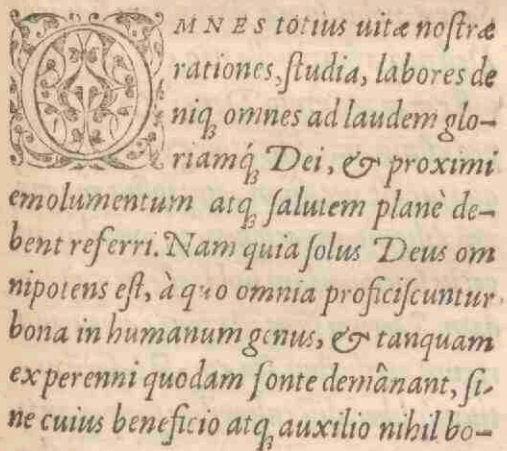 OMNES totius uitæ noſtræ
rationes, ſtudia, labores de
niq; omnes ad laudem glo-
riamq́; Dei, & proximi
emolumentum atq; ſalutem planè de-
bent referri. Nam quia ſolus Deus om
nipotens eſt, à quo omnia proficiſcuntur
bona in humanum genus, & tanquam
ex perenni quodam fonte demânant, ſi-
ne cuius beneficio atq; auxilio nihil bo-